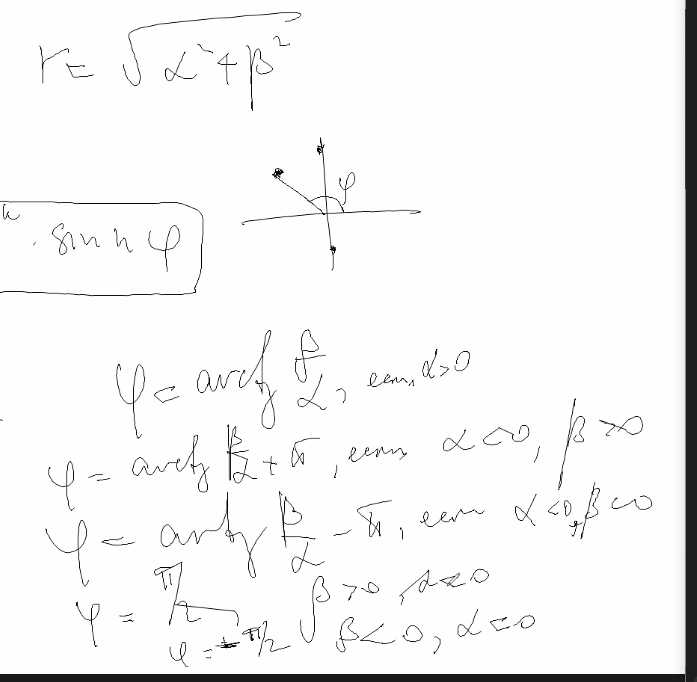 r = √α²+β²
φ
n · sin n φ
φ = arctg β/α, если α>0
φ = arctg β/α + π, если α<0, β>0
φ = arctg β/α - π, если α<0, β<0
φ = π/2, β>0, α=0
φ = -π/2 β<0, α=0